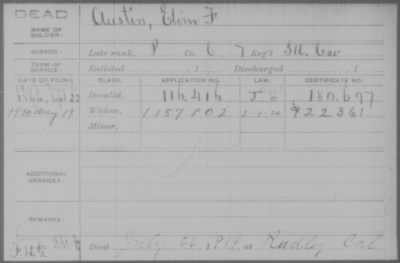 DEAD
NAME OF SOLDIER:
Austin, F
SERVICE:
Late rank, P Co. C, 7 Reg't Ill. Cav
TERM OF SERVICE:
Enlisted , 1 Discharged , 1
DATE OF FILING. CLASS. APPLICATION NO. LAW. CERTIFICATE NO.
Sept 22 Invalid, 116,416 180,697
May 19 Widow, 1157802 922361
Minor,
ADDITIONAL SERVICES:
REMARKS:
Died July 26, 1919, at Cal